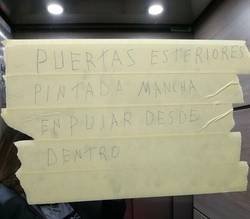 PUERTAS ESTERIORES
PINTADA MANCHA
ENPUJAR DESDE
DENTRO